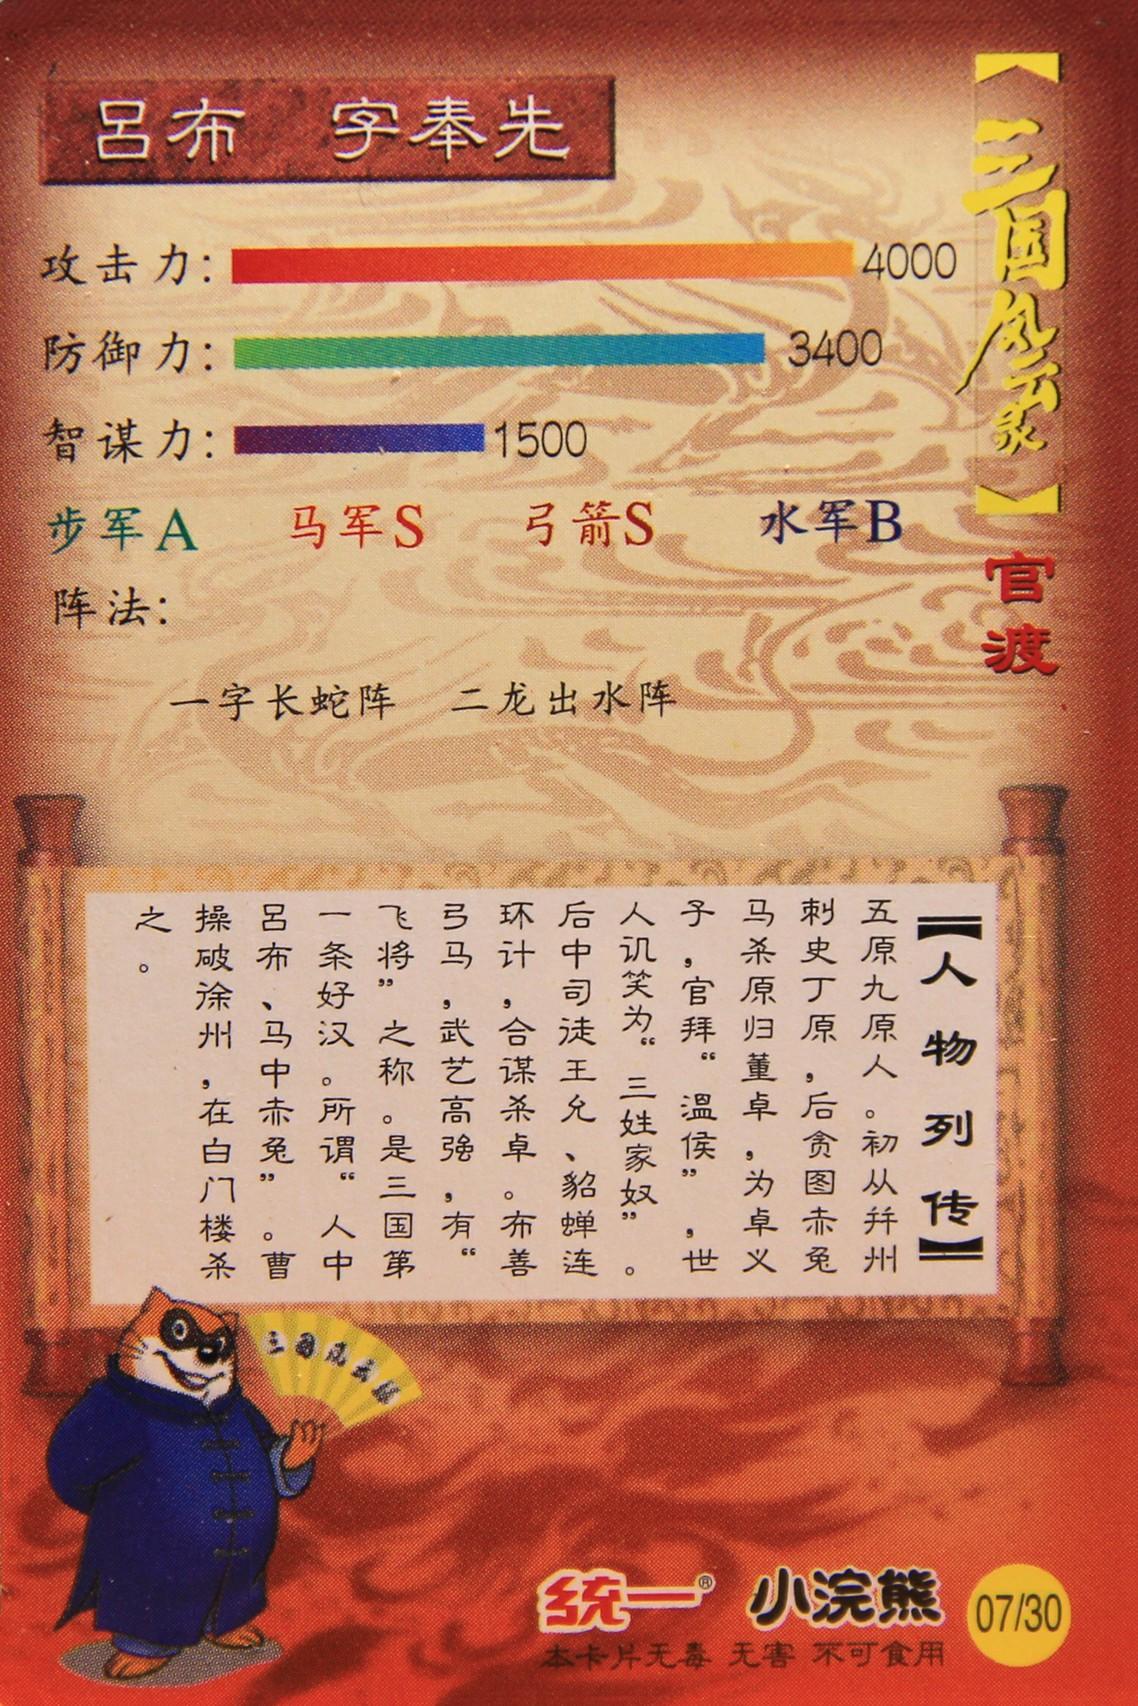 呂布　字奉先
攻击力: 4000
防御力: 3400
智谋力: 1500
步军A 马军S 弓箭S 水军B
阵法:
一字长蛇阵 二龙出水阵
【三国风云录】官渡
【人物列传】
五原九原人。初从并州
刺史丁原，后贪图赤兔
马杀原归董卓，为卓义
子，官拜“溫侯”，世
人讥笑为“三姓家奴”。
后中司徒王允、貂蝉连
环计，合谋杀卓。布善
弓马，武艺高强，有“
飞将”之称。是三国第
一条好汉。所谓“人中
呂布、马中赤兔”。曹
操破徐州，在白门楼杀
之。
三国风云录
统一® 小浣熊
07/30
本卡片无毒 无害 不可食用